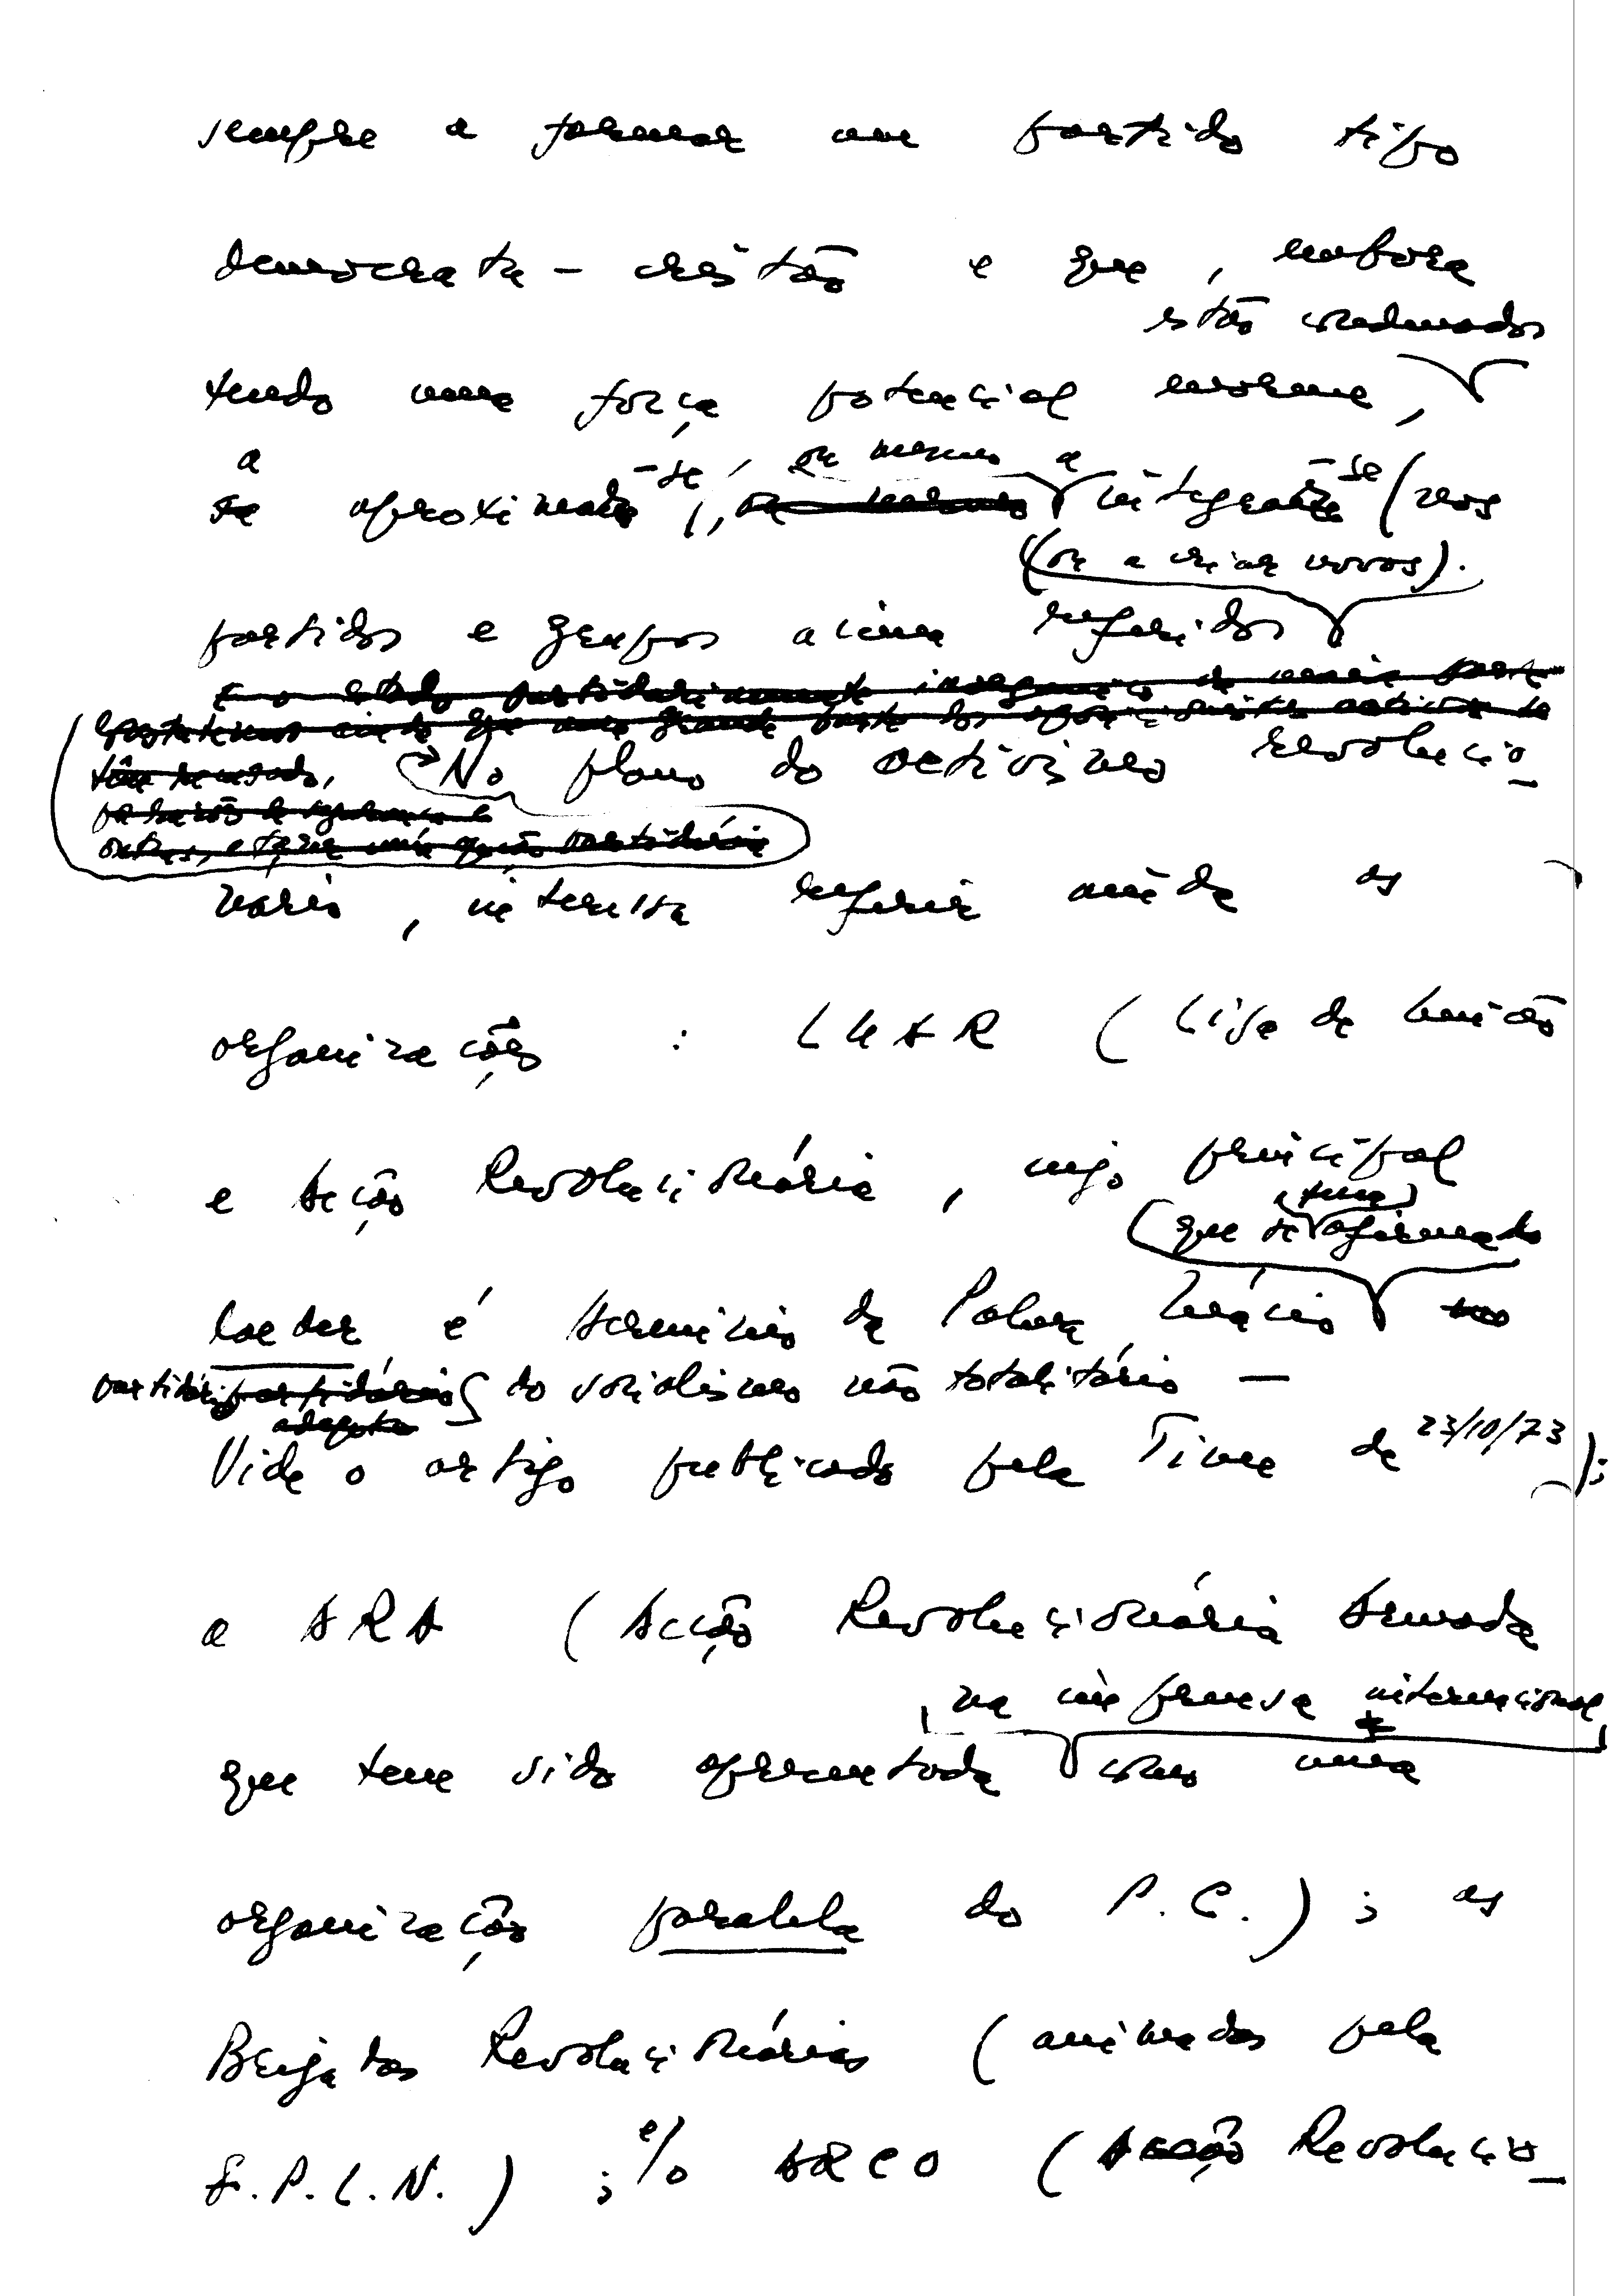 sempre a formar um partido tipo
democrata-cristão e que, embora
estão condenados
tendo uma força potencial enorme,
a -se, ou mesmo a -se
se aproximado, integrar (nos
(ou a criar novos).
partidos e grupos acima referidos
No plano do activismo revolucio-
nário, interessa referir ainda as
organizações : LUAR (Liga de União
e Acção Revolucionária, cujo principal
(tem)
(que se afirmado
leader é Hermínio da Palma Inácio
partidário do socialismo não totalitário —
Vide o artigo publicado pela Time de 23/10/73);
a ARA (Acção Revolucionária Armada
na imprensa internacional
que tem sido apresentada como uma
organização paralela do P.C.) ; as
Brigadas Revolucionárias (animadas pela
F.P.L.N.) ; e/o ARCO (Acção Revolucio-